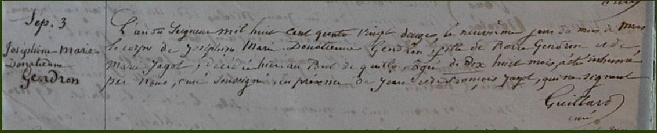 Sep. 3
Joséphine Marie
Donatienne
Gendron
L'an du Seigneur mil huit cent quatre vingt douze le neuvième jour du mois de mars
le corps de Joséphine Marie Donatienne Gendron, fille de Gendron et de
Marie Jagot, décédée hier au Bout de âgée de dix huit mois, a été inhumé
par nous, curé soussigné, en présence de Jean et de François Jagot, qui ne signent
Guittard
curé